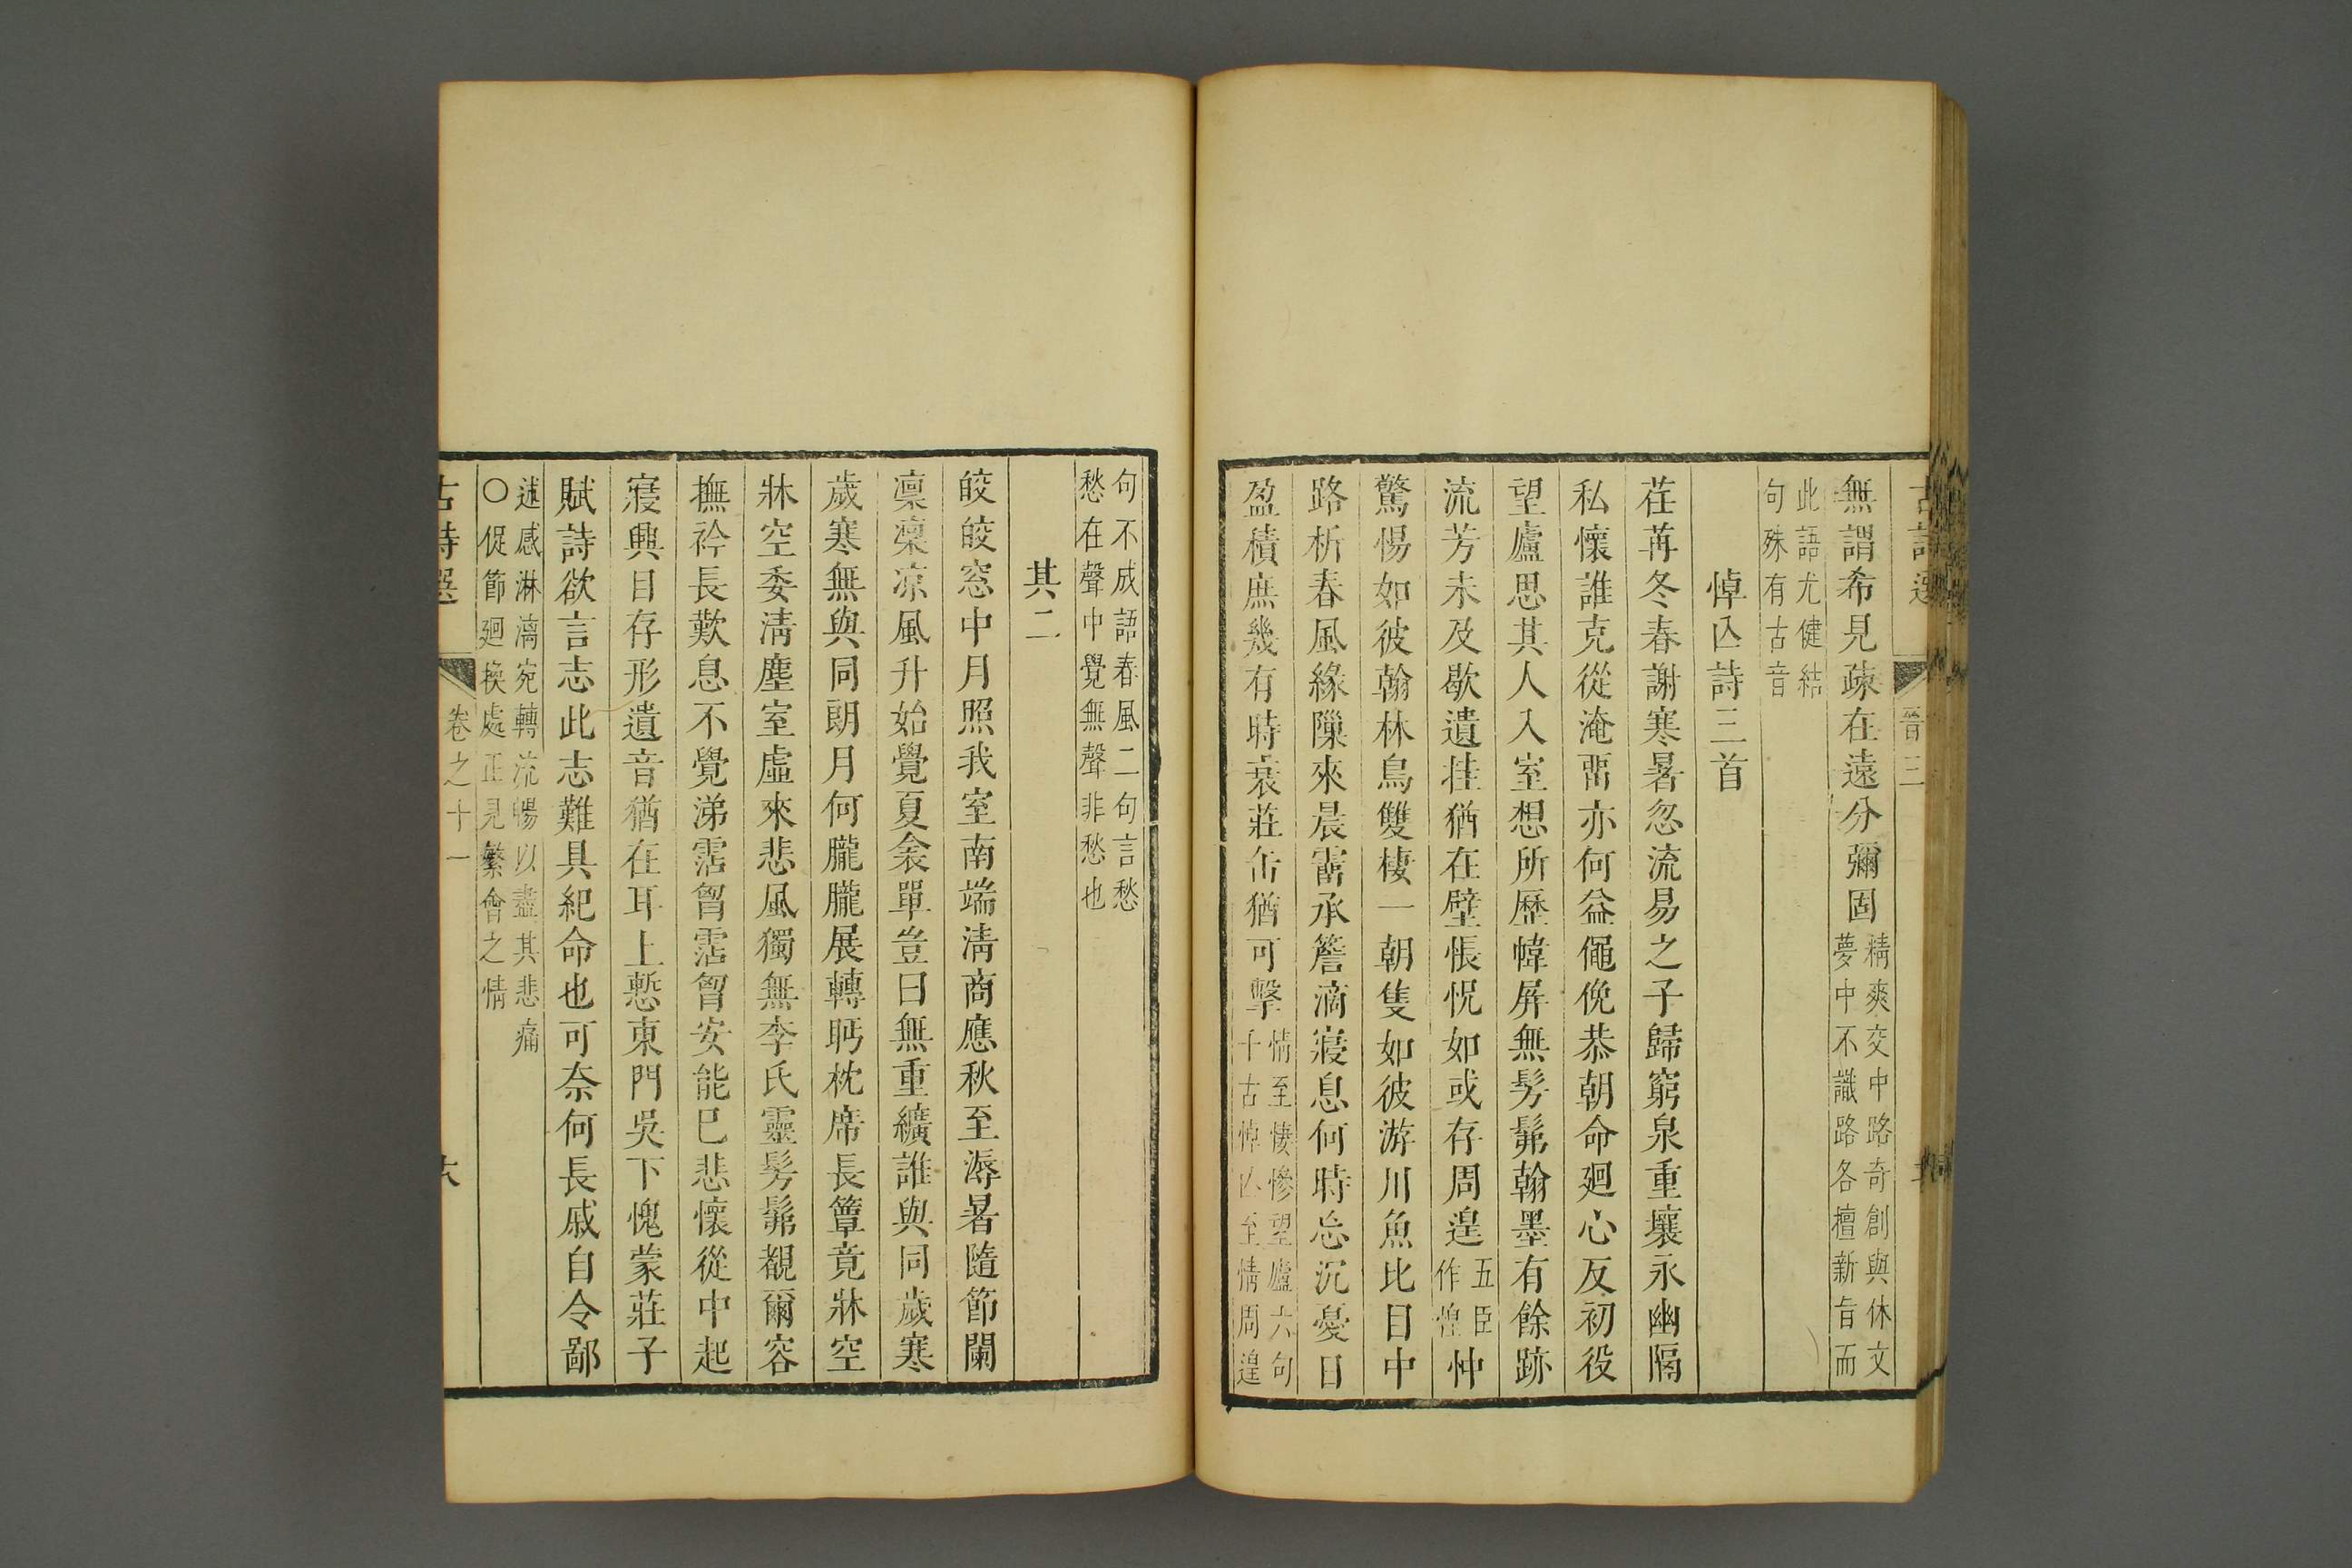 古詩選 晉三
無謂希見疎在遠分彌固 精爽交中路奇創與休文
夢中不識路各擅新旨而
此語尤健結
句殊有古音
悼亾詩三首
荏苒冬春謝寒暑忽流易之子歸窮泉重壤永幽隔
私懷誰克從淹畱亦何益僶俛恭朝命廻心反初役
望廬思其人入室想所歷幃屏無髣髴翰墨有餘跡
流芳未及歇遺挂猶在壁悵怳如或存周遑 五臣作惶 忡
驚惕如彼翰林鳥雙棲一朝隻如彼游川魚比目中
路析春風緣隟來晨霤承簷滴寢息何時忘沉憂日
盈積庶幾有時衰莊缶猶可擊 情至悽慘望廬六句
千古悼亾至情周遑
句不成語春風二句言愁
愁在聲中覺無聲非愁也
其二
皎皎窓中月照我室南端淸商應秋至溽暑隨節闌
凛凛凉風升始覺夏衾單豈曰無重纊誰與同歲寒
歲寒無與同朗月何朧朧展轉眄枕席長簟竟牀空
牀空委淸塵室虛來悲風獨無李氏靈髣髴覩爾容
撫衿長歎息不覺涕霑胷霑胷安能已悲懷從中起
寢興目存形遺音猶在耳上慙東門吳下愧蒙莊子
賦詩欲言志此志難具紀命也可奈何長戚自令鄙
述感淋漓宛轉流暢以盡其悲痛
○促節廻換處正見繁會之情
古詩選 卷之十一 六